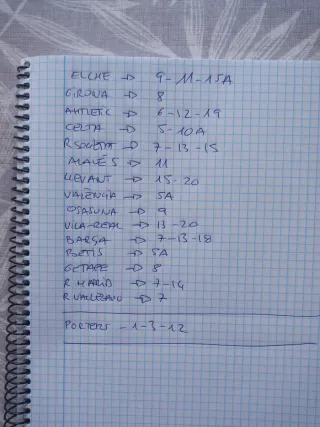 ELCHE → 9-11-15A
GIRONA → 8
AHTLETIC → 6-12-19
CELTA → 5-10A
R SOCIETAT → 7-13-15
ALAVÉS → 11
LLEVANT → 15-20
VALÈNCIA → 5A
OSASUNA → 9
VILA-REAL → 13-20
BARÇA → 7-13-18
BETIS → 5A
GETAFE → 8
R MADRID → 7-14
R VALLECANO → 7
PORTERS -1-3-12